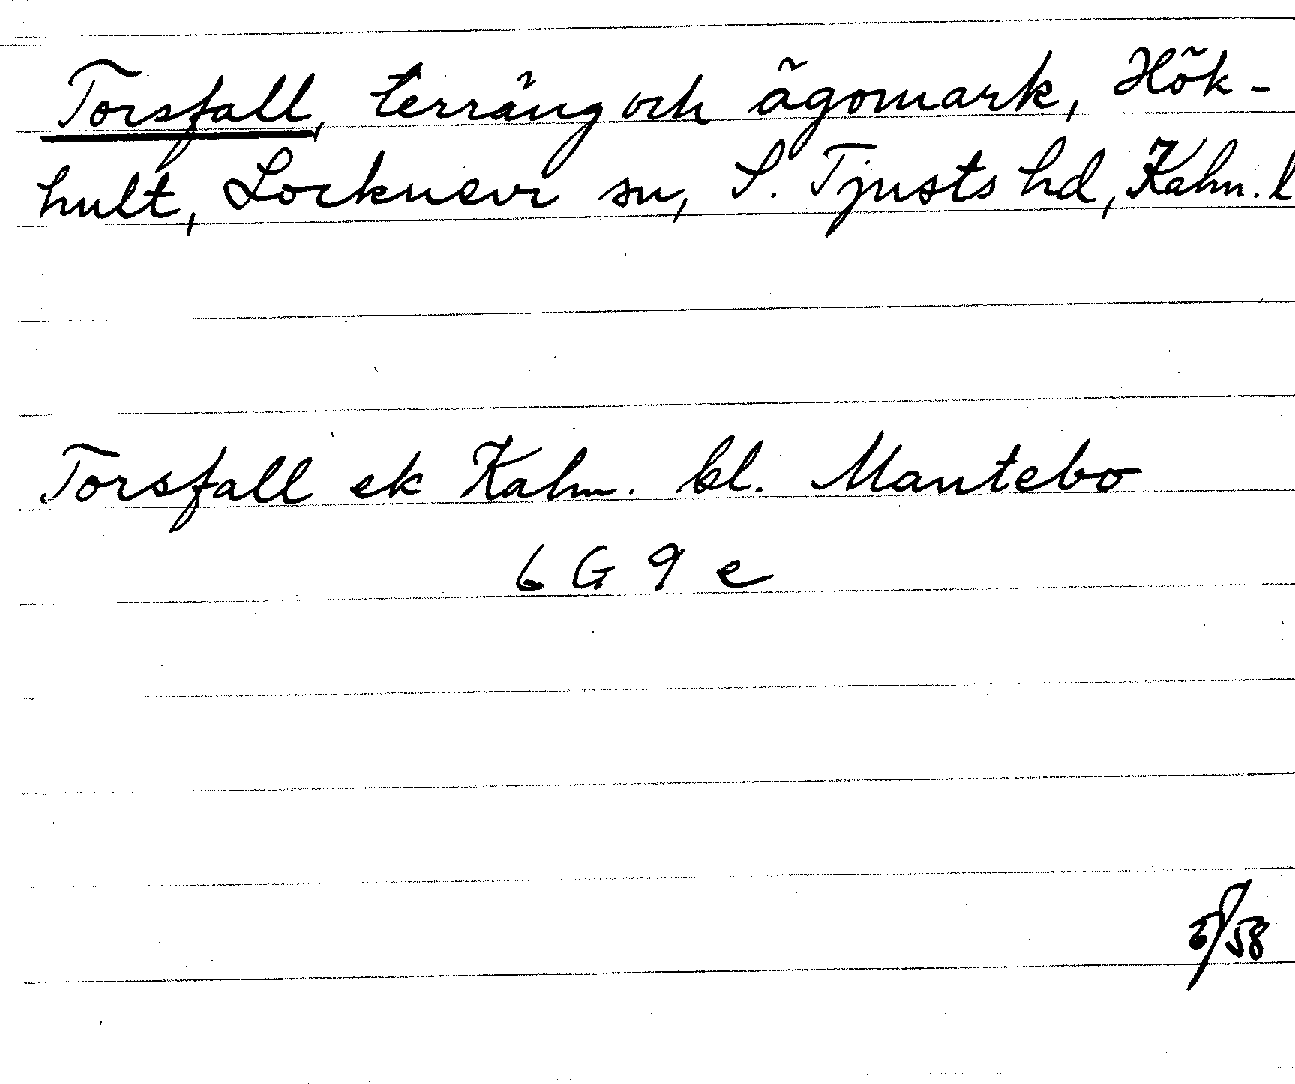 Torsfall, terräng och ägomark, Hök-
hult, Locknevi sn, S. Tjusts hd, Kalm. l
Torsfall ek Kalm. bl. Mantebo
6 G 9 e